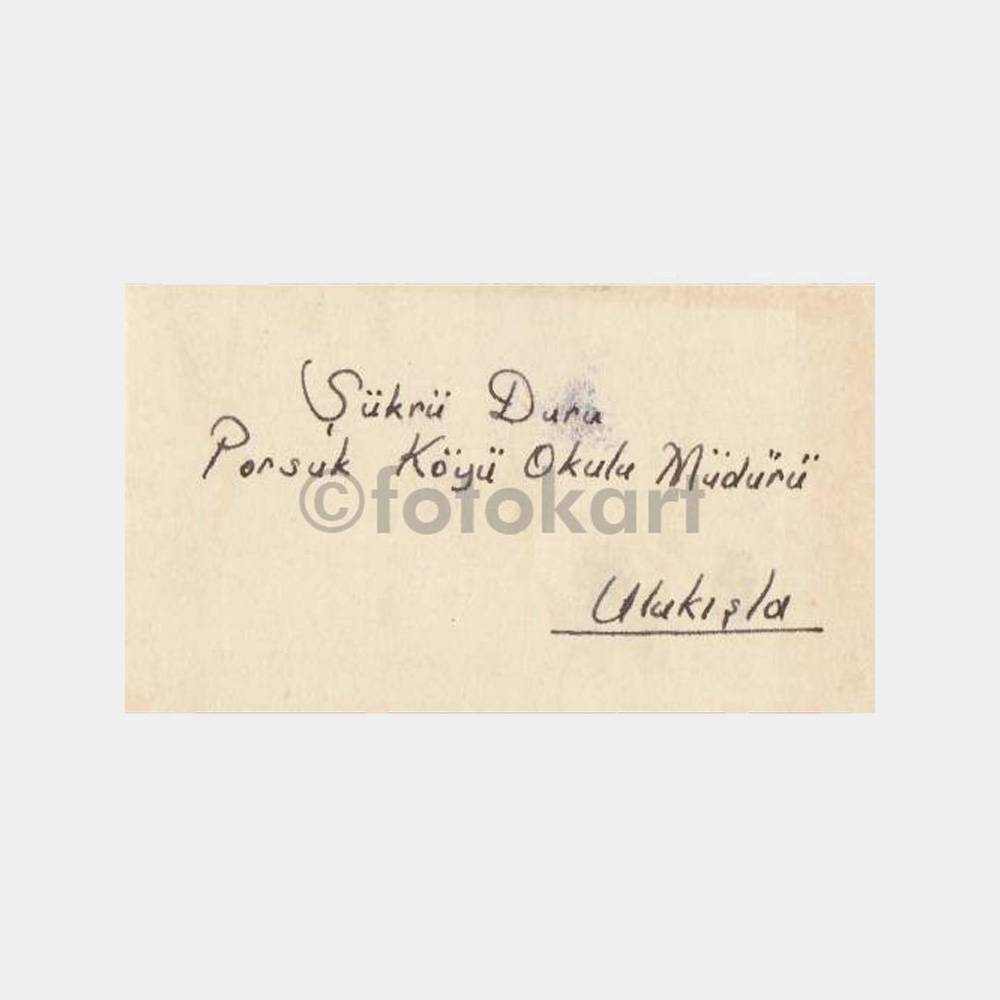 Şükrü Duru
Porsuk Köyü Okulu Müdürü
©fotokart
Ulukışla